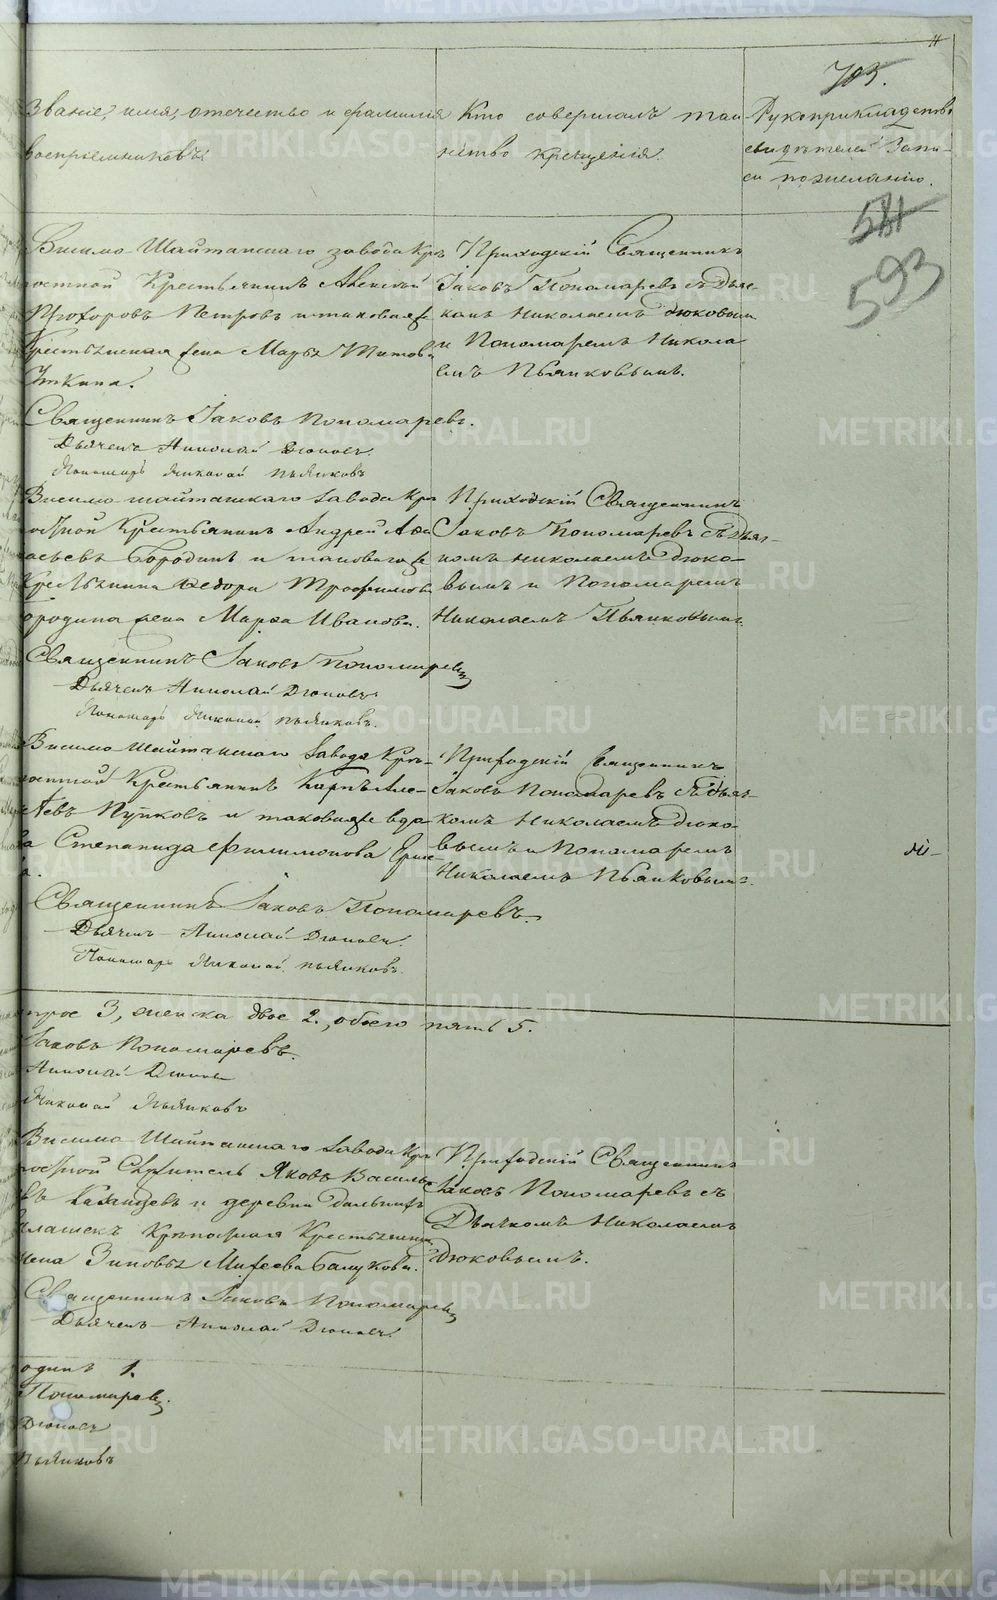 703.
Званіе, имя, отечество и фамилія
воспріемниковъ.
Кто совершалъ таи-
нство крещенія.
Рукоприкладство
свидѣтелей запи-
си по желанію.
511
593
Висимо-Шайтанскаго завода Крѣ-
постной Крестьянинъ Алексѣй
Прохоровъ Петровъ и таковаго же
Крестьянская жена Марья Титова
Уткина.
Приходскій Священникъ
Іаковъ Пономаревъ съ Дьяч-
комъ Николаемъ Дюковымъ
и Пономаремъ Никола
емъ Пьянковымъ.
Священникъ Іаковъ Пономаревъ.
Дьячекъ Николай Дюковъ.
Пономарь Николай Пьянковъ
Висимо-шайтанскаго завода Крѣ
постной Крестьянинъ Андрей Афа
сьевъ Бородинъ и таковаго же
Крестьянина Федора Трофимова
ородина жена Марѳа Иванова.
Приходскій Священникъ
Іаковъ Пономаревъ съ Дьяч-
комъ Николаемъ Дюко-
вымъ и Пономаремъ
Николаемъ Пьянковымъ.
Священникъ Іаковъ Пономаревъ
Дьячекъ Николай Дюковъ
Пономарь Николай Пьянковъ.
Висимо Шайтанскаго Завода Крѣ-
постной Крестьянинъ Карпъ Але-
евъ Пупковъ и таковая же вдо-
ва Степанида Филимонова
Приходскій Священникъ
Іаковъ Пономаревъ съ Дьяч-
комъ Николаемъ Дюко-
вымъ и Пономаремъ
Николаемъ Пьянковымъ.
Священникъ Іаковъ Пономаревъ.
Дьячекъ Николай Дюковъ.
Пономарь Николай Пьянковъ.
трое 3, женска двое 2., обоего пять 5.
Іаковъ Пономаревъ.
Николай Дюковъ
Николай Пьянковъ
Висимо Шайтанскаго Завода Крѣ
постной Служитель Яковъ Василь
въ Казанцевъ и деревни
Крѣпостная Крестьянин
жена Зиновья Михеева
Приходскій Священникъ
Іаковъ Пономаревъ съ
Дьячкомъ Николаемъ
Дюковымъ.
Священникъ Іаковъ Пономаревъ
Дьячекъ Николай Дюковъ.
одинъ 1.
Пономаревъ.
Дюковъ
Пьянковъ
METRIKI.GASO-URAL.RU